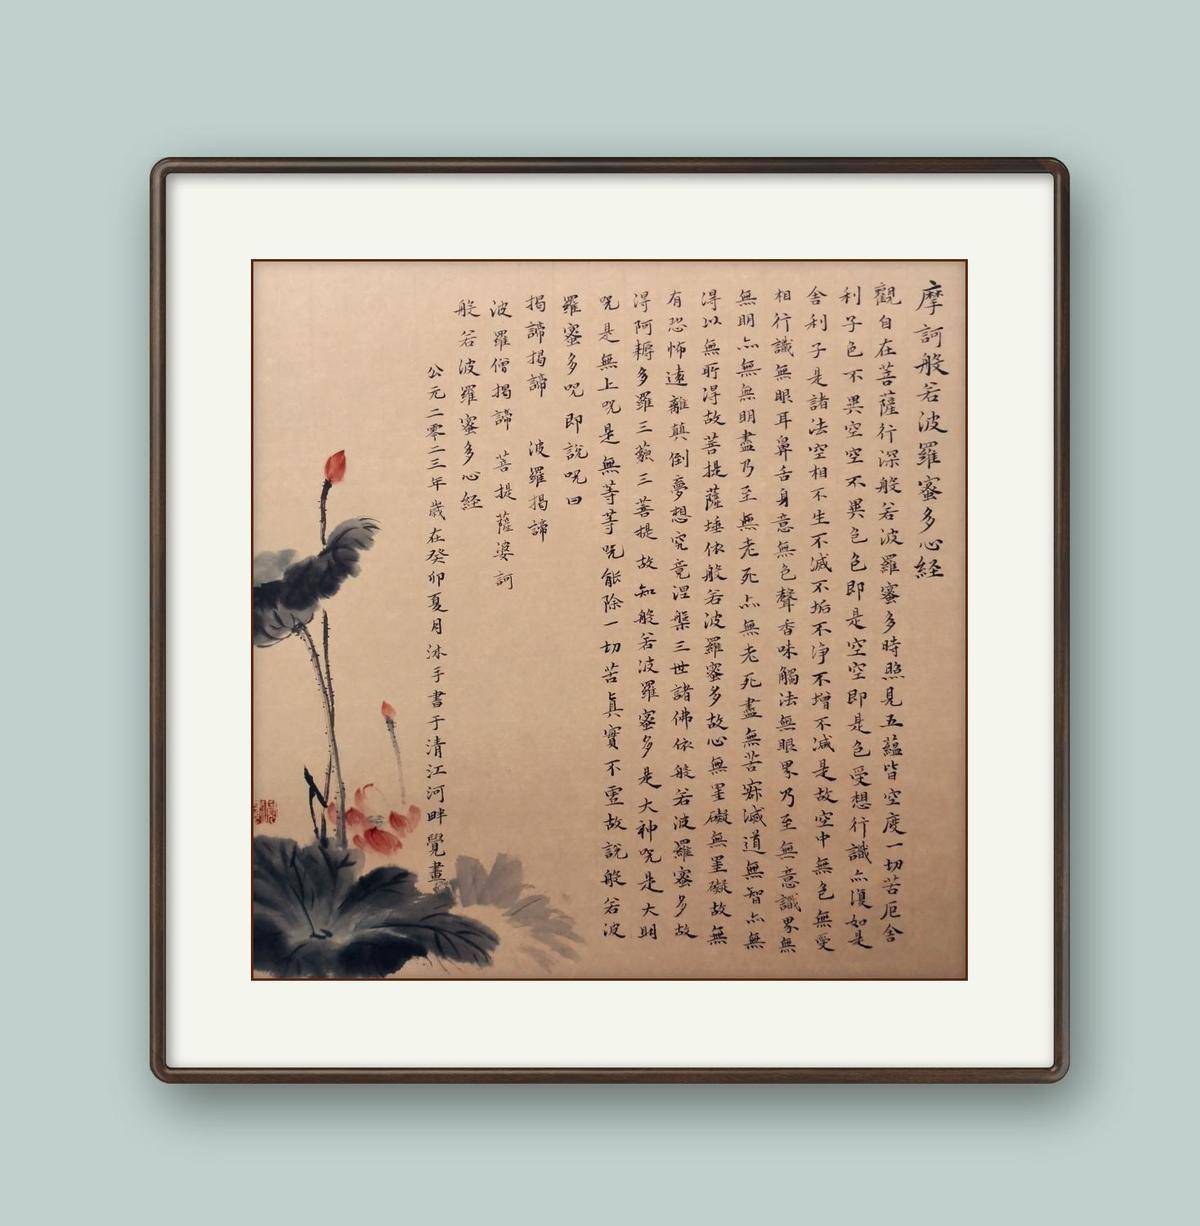 摩訶般若波羅蜜多心経
觀自在菩薩行深般若波羅蜜多時照見五蘊皆空度一切苦厄舍
利子色不異空空不異色色即是空空即是色受想行識亦復如是
舍利子是諸法空相不生不滅不垢不淨不增不減是故空中無色無受
相行識無眼耳鼻舌身意無色聲香味觸法無眼界乃至無意識界無
無明亦無無明盡乃至無老死亦無老死盡無苦寂滅道無智亦無
得以無所得故菩提薩埵依般若波羅蜜多故心無罣礙無罣礙故無
有恐怖遠離顛倒夢想究竟涅槃三世諸佛依般若波羅蜜多故
得阿耨多羅三藐三菩提故知般若波羅蜜多是大神咒是大明
咒是無上咒是無等等咒能除一切苦真實不虛故說般若波
羅蜜多咒即說咒曰
揭諦揭諦 波羅揭諦
波羅僧揭諦 菩提薩婆訶
般若波羅蜜多心経
公元二零二三年歲在癸卯夏月沐手書于清江河畔覺畫